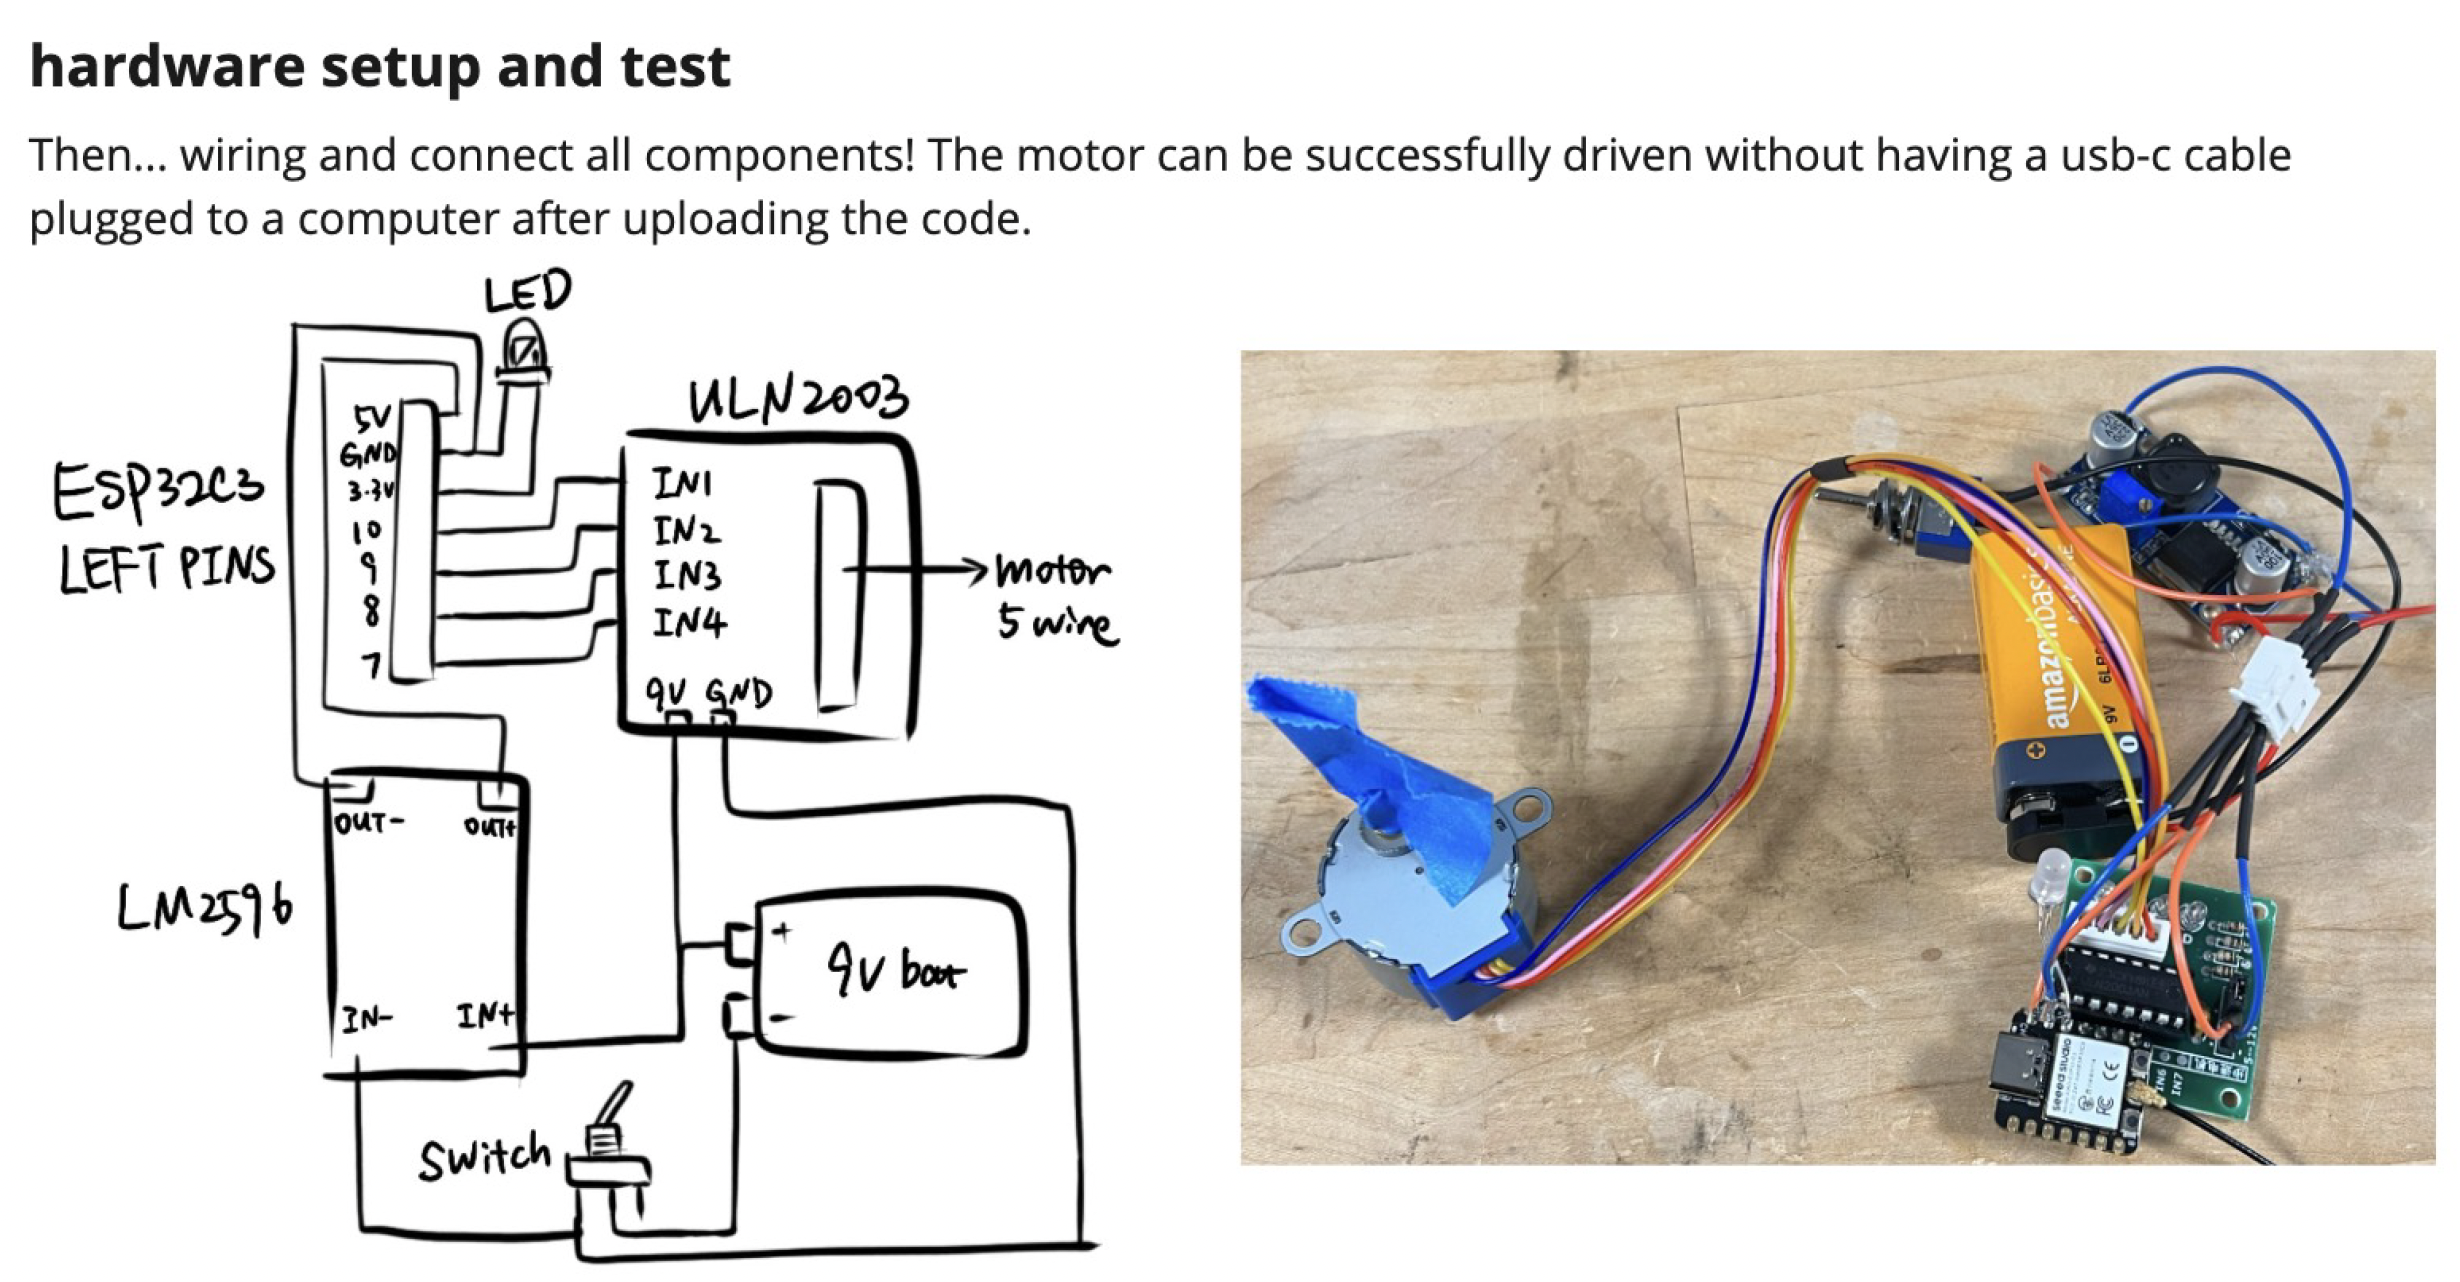 hardware setup and test
Then... wiring and connect all components! The motor can be successfully driven without having a usb-c cable
plugged to a computer after uploading the code.
LED
ULN2003
5V
GND
3.3V
10
9
8
7
ESP32C3
LEFT PINS
IN1
IN2
IN3
IN4
9V GND
→ motor
5 wire
OUT- OUT+
LM2596
IN- IN+
+
9V batt
-
Switch
amazonbasics
9V
seeed studio
CE
FC
IN6
IN7